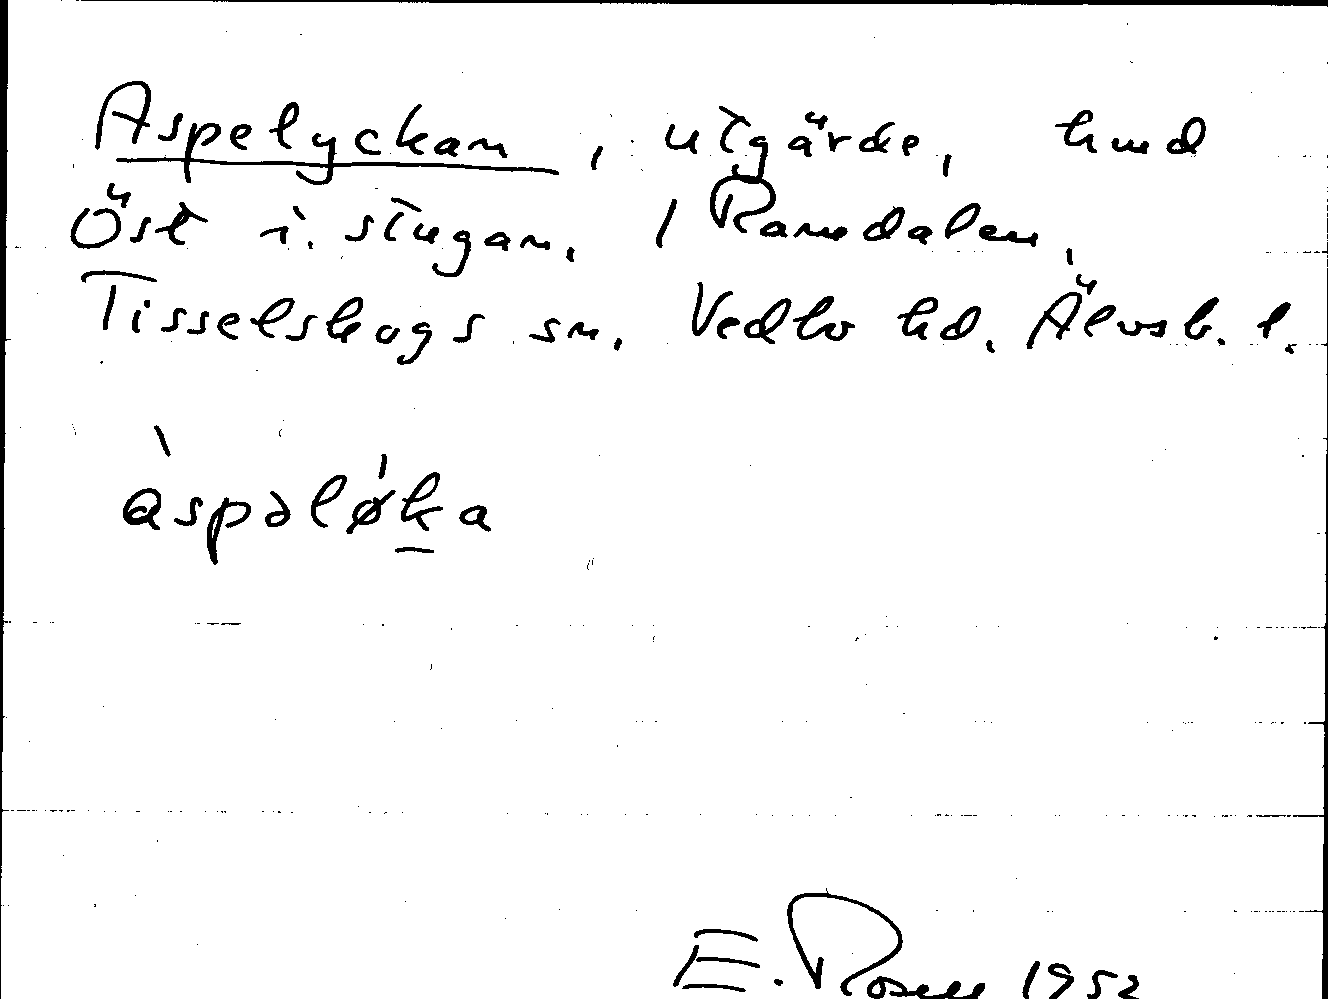 Aspelyckan, utgärde,
Öst i. stugan. / Ramdalen,
Tisselskogs sn. Vedbo hd. Älvsb. l.
àspəlø̍ka
E. Rosell 1952